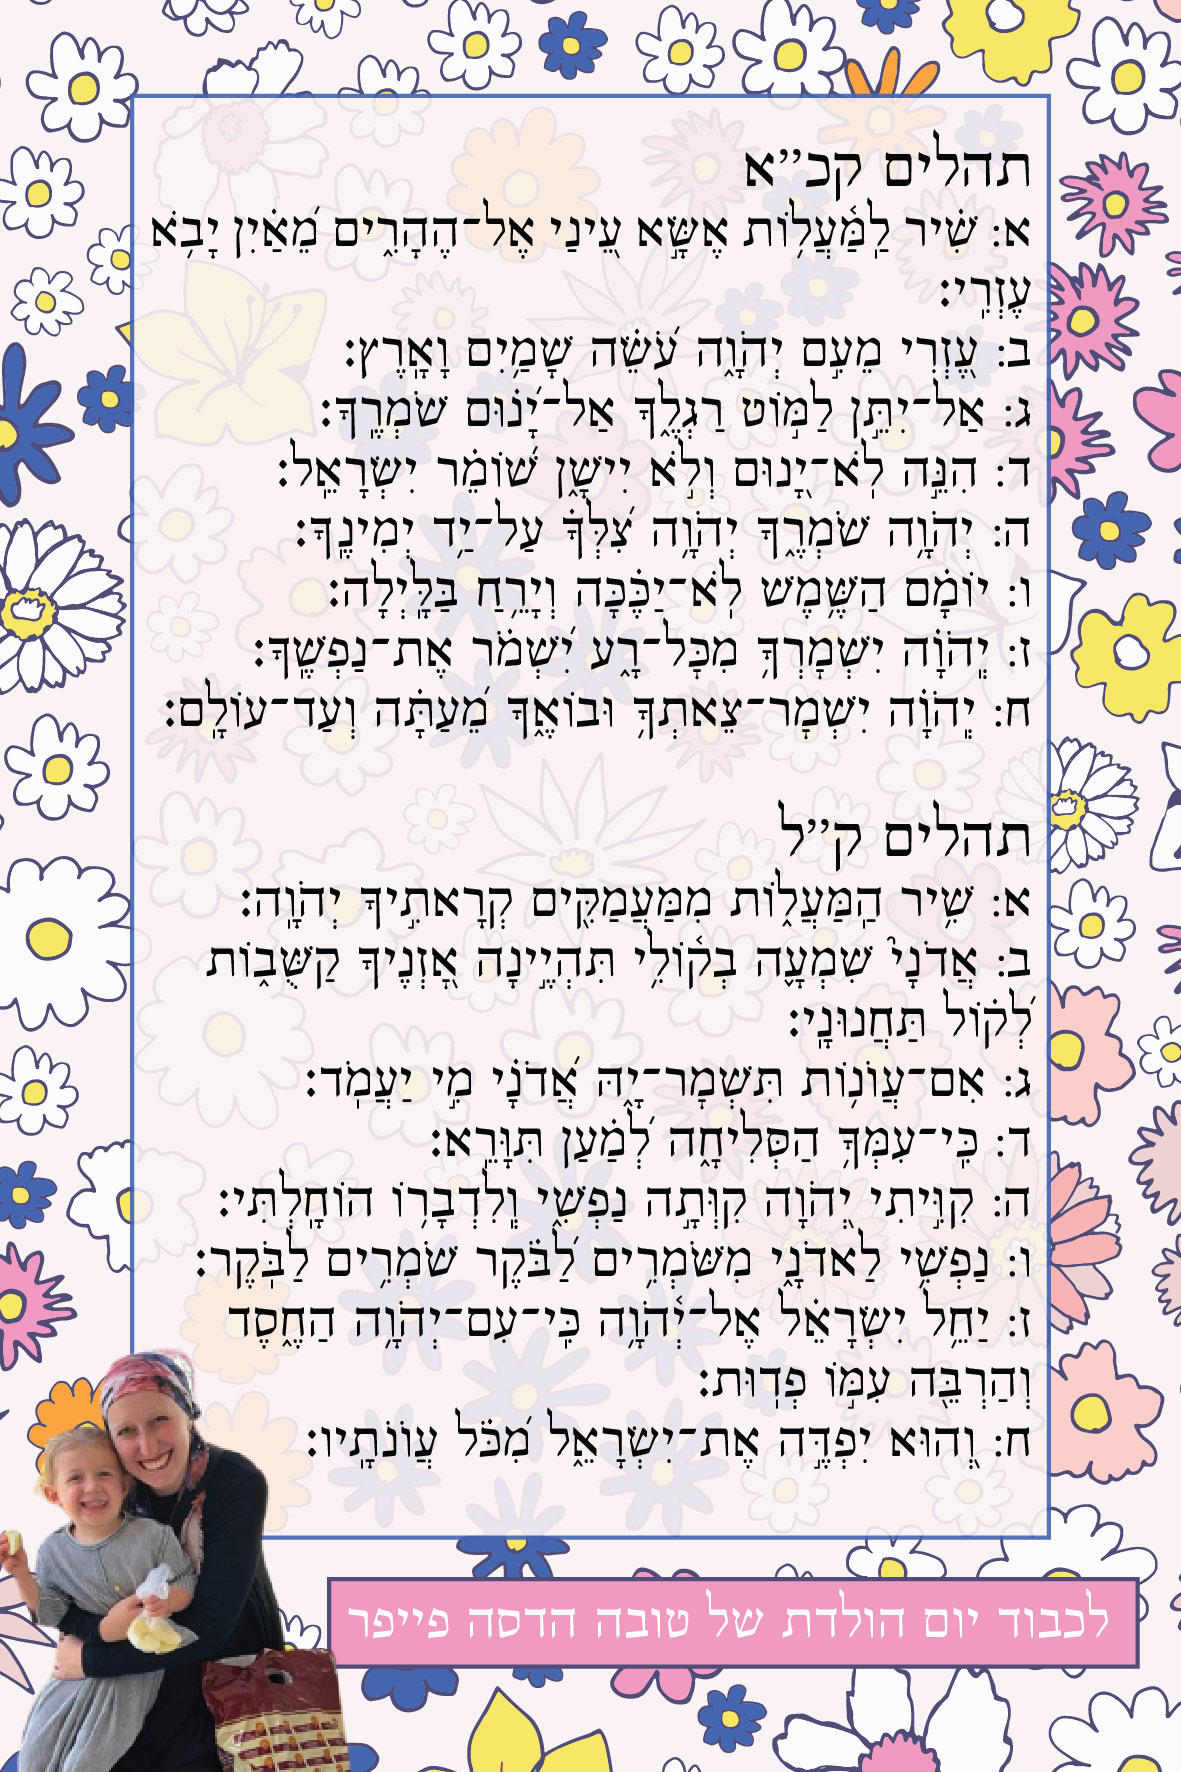 תהלים קכ״א
א: שִׁ֗יר לַֽמַּ֫עֲל֥וֹת אֶשָּׂ֣א עֵ֭ינַי אֶל־הֶהָרִ֑ים מֵ֝אַ֗יִן יָבֹ֥א
עֶזְרִֽי׃
ב: עֶ֭זְרִי מֵעִ֣ם יְהֹוָ֑ה עֹ֝שֵׂ֗ה שָׁמַ֥יִם וָאָֽרֶץ׃
ג: אַל־יִתֵּ֣ן לַמּ֣וֹט רַגְלֶ֑ךָ אַל־יָ֝נ֗וּם שֹׁמְרֶֽךָ׃
ד: הִנֵּ֣ה לֹֽא־יָ֭נוּם וְלֹ֣א יִישָׁ֑ן שׁ֝וֹמֵ֗ר יִשְׂרָאֵֽל׃
ה: יְהֹוָ֥ה שֹׁמְרֶ֑ךָ יְהֹוָ֥ה צִ֝לְּךָ֗ עַל־יַ֥ד יְמִינֶֽךָ׃
ו: יוֹמָ֗ם הַשֶּׁ֥מֶשׁ לֹֽא־יַכֶּ֗כָּה וְיָרֵ֥חַ בַּלָּֽיְלָה׃
ז: יְֽהֹוָ֗ה יִשְׁמׇרְךָ֥ מִכׇּל־רָ֑ע יִ֝שְׁמֹ֗ר אֶת־נַפְשֶֽׁךָ׃
ח: יְֽהֹוָ֗ה יִשְׁמׇר־צֵאתְךָ֥ וּבוֹאֶ֑ךָ מֵ֝עַתָּ֗ה וְעַד־עוֹלָֽם׃
תהלים ק״ל
א: שִׁ֥יר הַֽמַּעֲל֑וֹת מִמַּעֲמַקִּ֖ים קְרָאתִ֣יךָ יְהֹוָֽה׃
ב: אֲדֹנָי֮ שִׁמְעָ֢ה בְק֫וֹלִ֥י תִּהְיֶ֣ינָה אׇ֭זְנֶיךָ קַשֻּׁב֑וֹת
לְ֝ק֗וֹל תַּחֲנוּנָֽי׃
ג: אִם־עֲוֺנ֥וֹת תִּשְׁמׇר־יָ֑הּ אֲ֝דֹנָ֗י מִ֣י יַעֲמֹֽד׃
ד: כִּֽי־עִמְּךָ֥ הַסְּלִיחָ֑ה לְ֝מַ֗עַן תִּוָּרֵֽא׃
ה: קִוִּ֣יתִי יְ֭הֹוָה קִוְּתָ֣ה נַפְשִׁ֑י וְֽלִדְבָר֥וֹ הוֹחָֽלְתִּי׃
ו: נַפְשִׁ֥י לַאדֹנָ֑י מִשֹּׁמְרִ֥ים לַ֝בֹּ֗קֶר שֹׁמְרִ֥ים לַבֹּֽקֶר׃
ז: יַחֵ֥ל יִשְׂרָאֵ֗ל אֶל־יְ֫הֹוָ֥ה כִּֽי־עִם־יְהֹוָ֥ה הַחֶ֑סֶד
וְהַרְבֵּ֖ה עִמּ֣וֹ פְדֽוּת׃
ח: וְ֭הוּא יִפְדֶּ֣ה אֶת־יִשְׂרָאֵ֑ל מִ֝כֹּ֗ל עֲוֺנֹתָֽיו׃
לכבוד יום הולדת של טובה הדסה פייפר